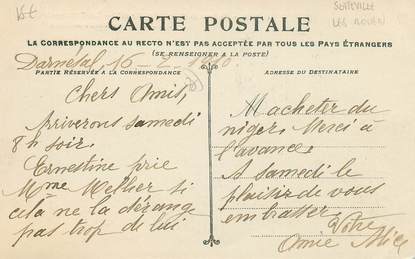 15€
SOTTEVILLE
LES ROUEN
CARTE POSTALE
LA CORRESPONDANCE AU RECTO N'EST PAS ACCEPTÉE PAR TOUS LES PAYS ÉTRANGERS
(SE RENSEIGNER A LA POSTE)
PARTIE RÉSERVÉE A LA CORRESPONDANCE
ADRESSE DU DESTINATAIRE
Darnétal, 16-2-1910
Chers Amis,
Arriverons samedi
8h soir.
Ernestine prie
Mme Melhier si
celà ne la dérange
pas trop de lui
Macheter du
niger. Merci à
l'avance.
A samedi le
plaisir de vous
embrasser.
Votre
Amie Alice